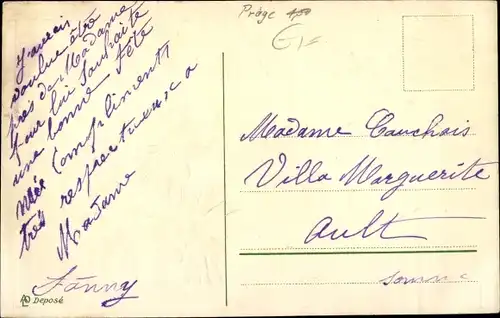 J'aurais
voulue être
près de Madame
pour lui souhaité
une bonne Fête
mes Compliments
très respectueux a
Madame
Fanny
Déposé
Präge
Madame Cauchois
Villa Marguerite
Ault
Somme